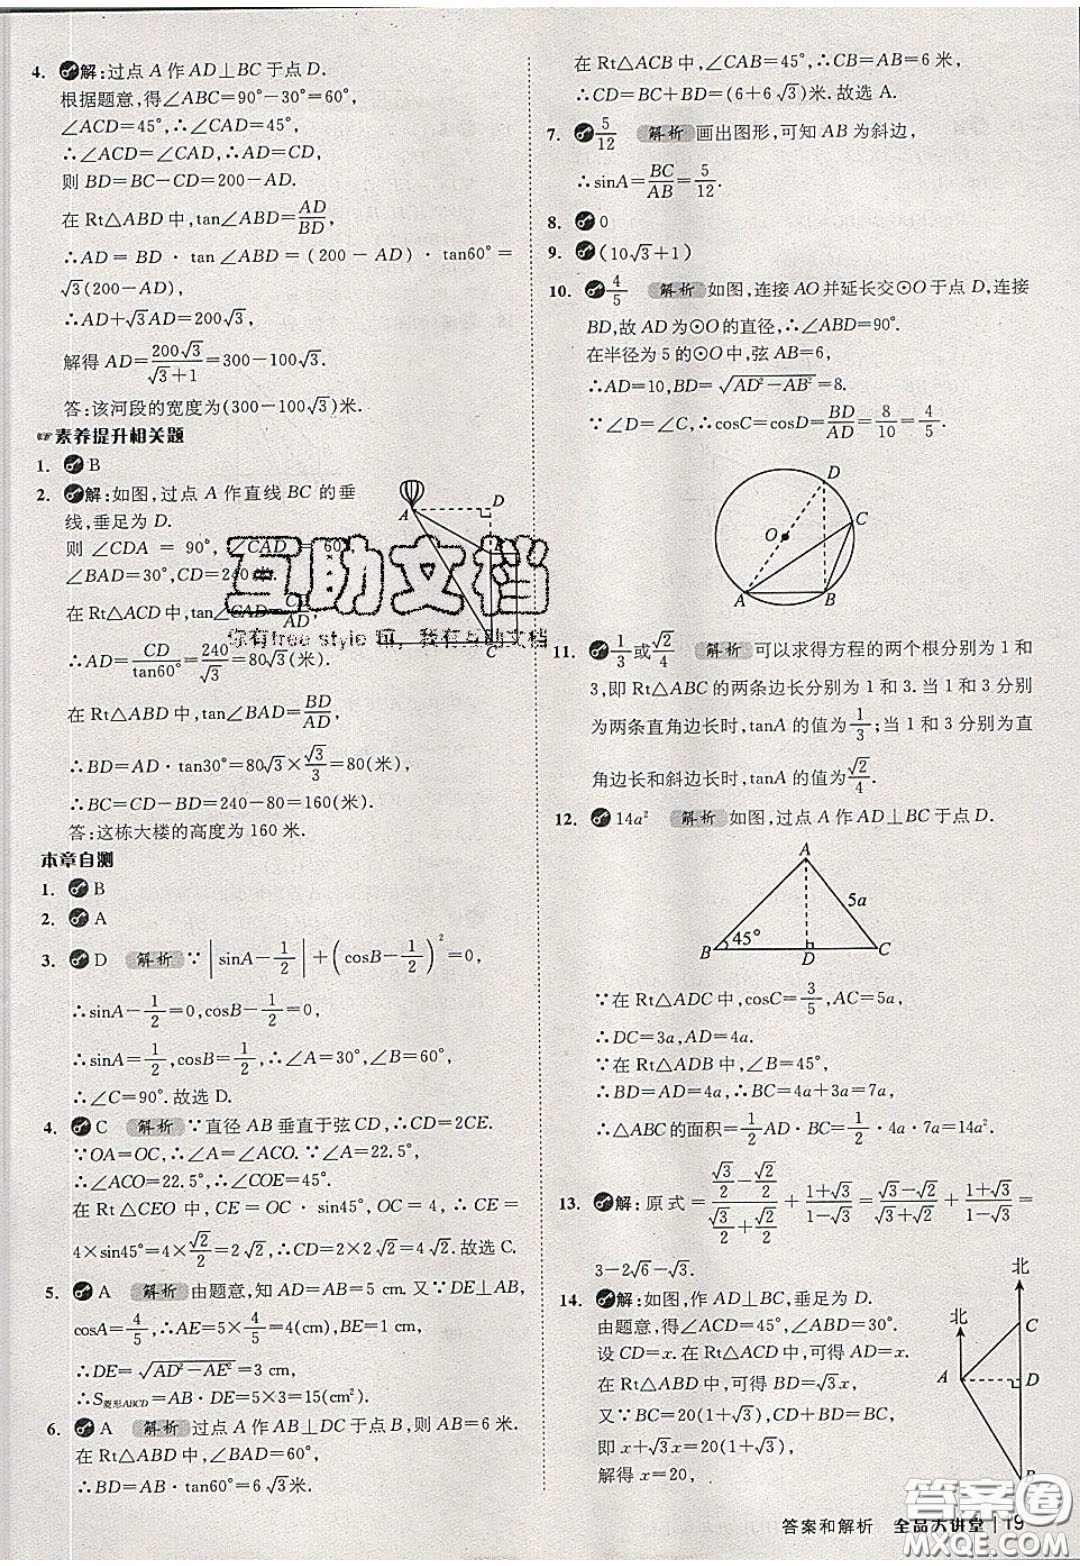 4. 解:过点 A 作 AD⊥BC 于点 D.
根据题意,得∠ABC=90°-30°=60°,
∠ACD=45°,∴∠CAD=45°,
∴∠ACD=∠CAD,∴AD=CD,
则 BD=BC-CD=200-AD.
在 Rt△ABD 中,tan∠ABD=AD/BD,
∴AD=BD·tan∠ABD=(200-AD)·tan60°=
√3(200-AD),
∴AD+√3AD=200√3,
解得 AD=200√3/(√3+1)=300-100√3.
答:该河段的宽度为(300-100√3)米.
☞素养提升相关题
1. B
2. 解:如图,过点 A 作直线 BC 的垂
线,垂足为 D.
则∠CDA=90°,∠CAD=60°,
∠BAD=30°,CD=240米.
在 Rt△ACD 中,tan∠CAD=CD/AD,
∴AD=CD/tan60°=240/√3=80√3(米).
在 Rt△ABD 中,tan∠BAD=BD/AD,
∴BD=AD·tan30°=80√3×√3/3=80(米),
∴BC=CD-BD=240-80=160(米).
答:这栋大楼的高度为 160 米.
A
D
B
C
本章自测
1. B
2. A
3. D 解析 ∵|sinA-1/2|+(cosB-1/2)²=0,
∴sinA-1/2=0,cosB-1/2=0,
∴sinA=1/2,cosB=1/2,∴∠A=30°,∠B=60°,
∴∠C=90°.故选 D.
4. C 解析 ∵直径 AB 垂直于弦 CD,∴CD=2CE.
∵OA=OC,∴∠A=∠ACO.∵∠A=22.5°,
∴∠ACO=22.5°,∴∠COE=45°.
在 Rt△CEO 中,CE=OC·sin45°,OC=4,∴CE=
4×sin45°=4×√2/2=2√2,∴CD=2×2√2=4√2.故选 C.
5. A 解析 由题意,知 AD=AB=5 cm.又∵DE⊥AB,
cosA=4/5,∴AE=5×4/5=4(cm),BE=1 cm,
∴DE=√(AD²-AE²)=3 cm,
∴S菱形ABCD=AB·DE=5×3=15(cm²).
6. A 解析 过点 A 作 AB⊥DC 于点 B,则 AB=6 米.
在 Rt△ABD 中,∠BAD=60°,
∴BD=AB·tan60°=6√3米.
在 Rt△ACB 中,∠CAB=45°,∴CB=AB=6 米,
∴CD=BC+BD=(6+6√3)米.故选 A.
7. 5/12 解析 画出图形,可知 AB 为斜边,
∴sinA=BC/AB=5/12.
8. 0
9. (10√3+1)
10. 4/5 解析 如图,连接 AO 并延长交⊙O 于点 D,连接
BD,故 AD 为⊙O 的直径,∴∠ABD=90°.
在半径为 5 的⊙O 中,弦 AB=6,
∴AD=10,BD=√(AD²-AB²)=8.
∵∠D=∠C,∴cosC=cosD=BD/AD=8/10=4/5.
D
C
O
A
B
11. 1/3或√2/4 解析 可以求得方程的两个根分别为 1 和
3,即 Rt△ABC 的两条边长分别为 1 和 3.当 1 和 3 分别
为两条直角边长时,tanA 的值为1/3;当 1 和 3 分别为直
角边长和斜边长时,tanA 的值为√2/4.
12. 14a² 解析 如图,过点 A 作 AD⊥BC 于点 D.
A
5a
B 45° D C
∵在 Rt△ADC 中,cosC=3/5,AC=5a,
∴DC=3a,AD=4a.
∵在 Rt△ADB 中,∠B=45°,
∴BD=AD=4a,∴BC=4a+3a=7a,
∴△ABC 的面积=1/2AD·BC=1/2·4a·7a=14a².
13. 解:原式=(√3/2-√2/2)/(√3/2+√2/2)+(1+√3)/(1-√3)=(√3-√2)/(√3+√2)+(1+√3)/(1-√3)=
3-2√6-√3.
14. 解:如图,作 AD⊥BC,垂足为 D.
由题意,得∠ACD=45°,∠ABD=30°.
设 CD=x.在 Rt△ACD 中,可得 AD=x,
在 Rt△ABD 中,可得 BD=√3x,
又∵BC=20(1+√3),CD+BD=BC,
即 x+√3x=20(1+√3),
解得 x=20,
北
北
C
A
D
B
互助文档
你有free style 吗，我有互助文档
答案和解析 全品大讲堂 19
答案卷
MXQE.COM